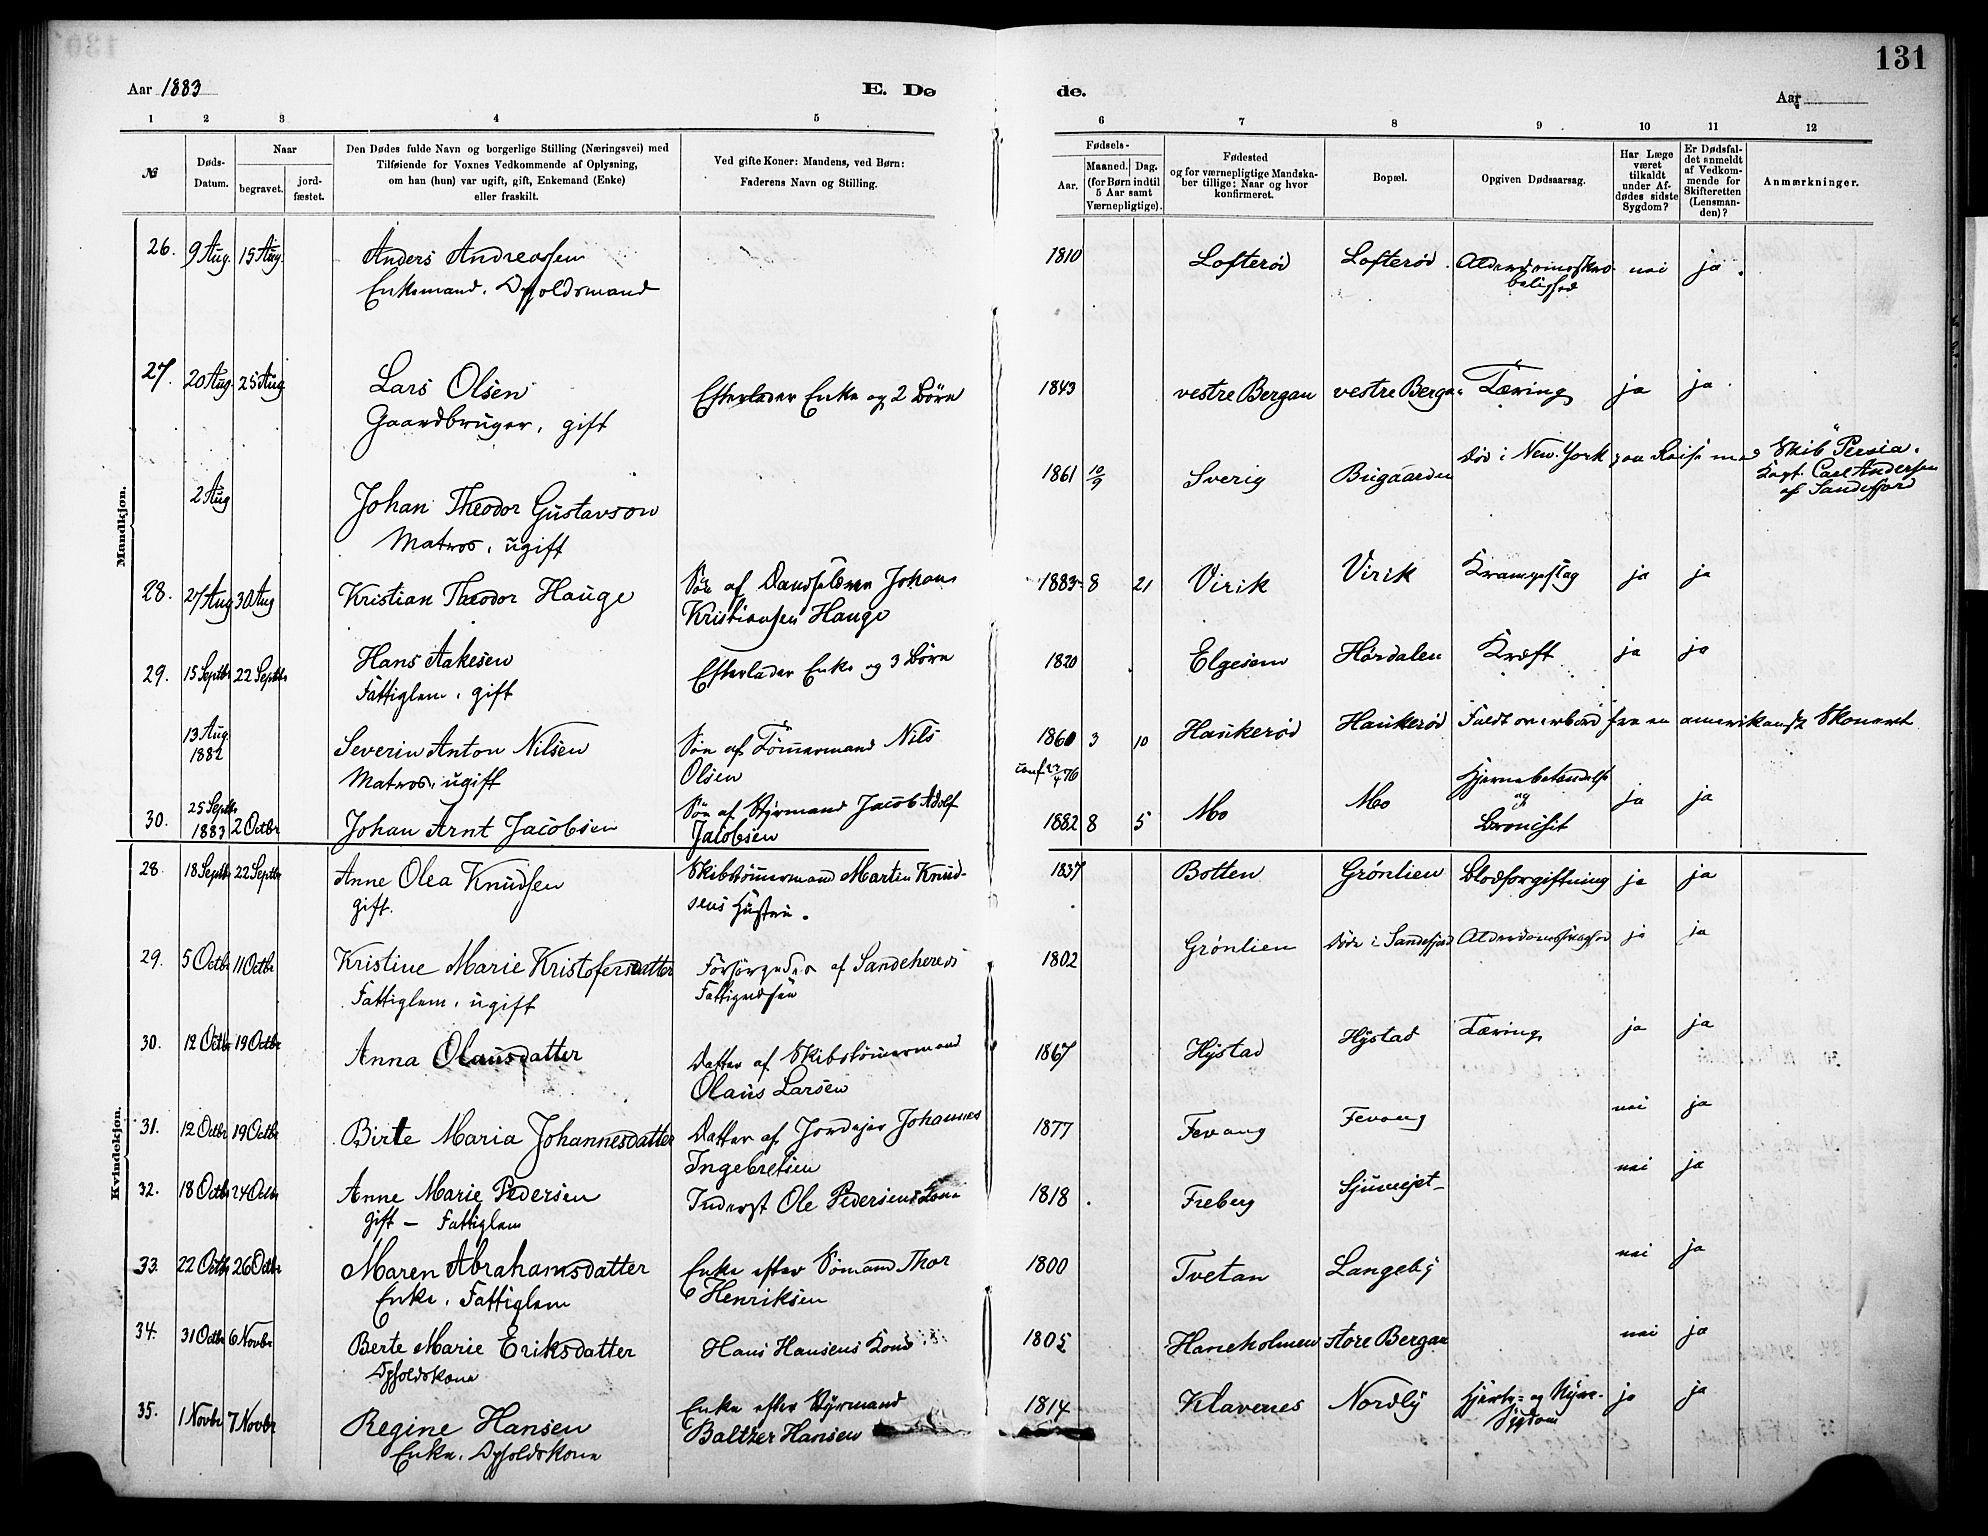 131
Aar 1883 E. Døde. Aar
1 2 3 4 5 6 7 8 9 10 11 12
№ Døds-Datum. Naar begravet. jordfæstet. Den Dødes fulde Navn og borgerlige Stilling (Næringsvei) med Tilføiende for Voxnes Vedkommende af Oplysning, om han (hun) var ugift, gift, Enkemand (Enke) eller fraskilt. Ved gifte Koner: Mandens, ved Børn: Faderens Navn og Stilling. Fødsels- Aar. Maaned. Dag. (for Børn indtil 5 Aar samt Værnepligtige). Fødested og for værnepligtige Mandskaber tillige: Naar og hvor konfirmeret. Bopæl. Opgiven Dødsaarsag. Har Læge været tilkaldt under Afdødes sidste Sygdom? Er Dødsfaldet anmeldt af Vedkommende for Skifteretten (Lensmanden)? Anmærkninger.
Mandkjøn.
26. 9 Aug. 15 Aug. Anders Andreassen 1810 Lofterød Lofterød. Alderdomsskrø- nei ja.
Enkemand. Dpholdsmand belighed
27. 20 Aug. 25 Aug Lars Olsen Efterlader Enke og 2 Børn 1843 vestre Bergan vestre Bergan Tæring ja ja.
Gaardbruger, gift
2 Aug Johan Theodor Gustavson 1861 10/9 Sverig Bugaarden Død i New-York paa Reise med Skib "Persia".
Matros, ugift Capt. Carl Andersen
af Sandefjord
28. 27 Aug 30 Aug Kristian Theodor Hauge Søn af Dandseleven Johan 1883 8 21 Virik Virik Krampeslag ja ja
Kristiansen Hauge
29. 15 Septbr 22 Septbr Hans Aakesen Efterlader Enke og 3 Børn 1820 Elgesem Hørdalen Kræft ja ja
Fattiglem, gift
13 Aug. 1882 Severin Anton Nilsen Søn af Tømmermand Nils 1860 3 10 Haukerød Haukerød Faldt overbord fra en amerikansk Skonnert
Matros, ugift Olsen conf. 23/4 76
30. 25 Septbr 1883 2 Octbr Johan Arnt Jacobsen Søn af Styrmand Jacob Adolf 1882 8 5 Mo Mo Hjernebetændelse og Bronchit ja ja
Jacobsen
Kvindekjøn.
28. 18 Septbr 22 Septbr Anne Olea Knudsen Skibstømmermand Martin Knud- 1837 Botten Grønlien Blodforgiftning ja ja
gift. sens Hustru.
29. 5 Octbr 11 Octbr Kristine Marie Kristofersdatter Forsørgedes af Sandeherreds 1802 Grønlien Døde i Sandefjord Alderdomssvaghed ja ja
Fattiglem, ugift Fattigvæsen
30. 12 Octbr 19 Octbr Anna Olausdatter Datter af Skibstømmermand 1867 Hystad Hystad Tæring ja ja
Olaus Larsen
31. 12 Octbr 19 Octbr Birte Maria Johannesdatter Datter af Jordejer Johannes 1877 Fevang Fevang nei ja
Ingebretsen
32. 18 Octbr 24 Octbr Anne Marie Pedersen Inderst Ole Pedersens Kone 1818 Freberg nei ja
gift – Fattiglem
33. 22 Octbr 26 Octbr Maren Abrahamsdatter Enke efter Sømand Thor 1800 Tvetan Langeby nei ja
Enke. Fattiglem Henriksen
34. 31 Octbr 6 Novbr Berte Marie Eriksdatter Hans Hansens Kone 1805 Haneholmen store Bergan nei ja
Dpholdskone
35. 1 Novbr 7 Novbr Regine Hansen Enke efter Styrmand 1814 Klavenes Nordby Hjerte- og Nyre- ja ja
Enke. Dpholdskone Baltzer Hansen Sygdom